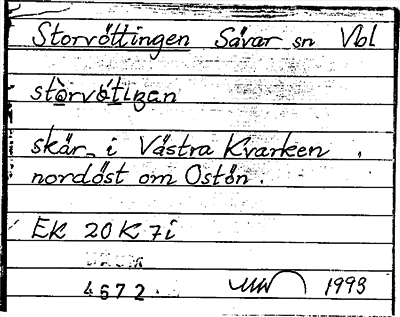 Storvöttingen Sävar sn Vbl
stòrvö́tiŋan
skär i Västra Kvarken
nordöst om Ostön.
EK 20 K 7i
4672.
1993